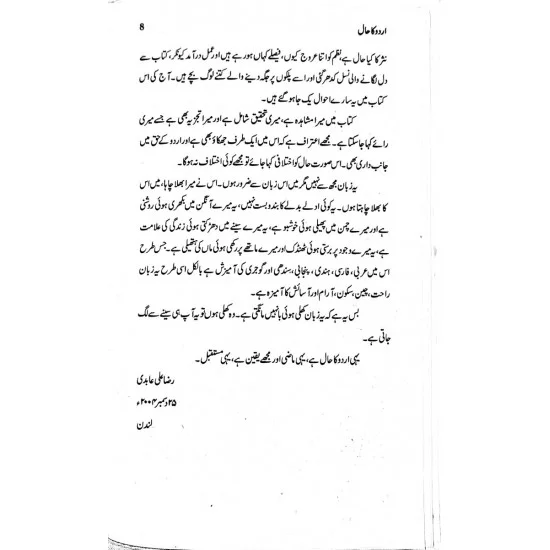 اردو کا حال 8
نثر کا کیا حال ہے، نظم کو اتنا عروج کیوں، فیصلے کہاں ہو رہے ہیں اور عمل درآمد کیونکر، کتاب سے
دل لگانے والی نسل کدھر گئی اور اسے پلکوں پر جگہ دینے والے کتنے لوگ بچے ہیں۔ آج کی اس
کتاب میں یہ سارے احوال یک جا ہو گئے ہیں۔
کتاب میں میرا مشاہدہ ہے، میری تحقیق شامل ہے اور میرا تجزیہ بھی ہے جسے میری
رائے کہا جا سکتا ہے۔ مجھے اعتراف ہے کہ اس میں ایک طرف جھکاؤ بھی ہے اور اردو کے حق میں
جانب داری بھی۔ اس صورت حال کو اختلافی کہا جائے تو مجھے کوئی اختلاف نہ ہوگا۔
یہ زبان مجھ سے نہیں مگر میں اس زبان سے ضرور ہوں۔ اس نے میرا بھلا چاہا، میں اس
کا بھلا چاہتا ہوں۔ یہ کوئی ادلے بدلے کا بندوبست نہیں، یہ میرے آنگن میں بکھری ہوئی روشنی
ہے اور میرے چمن میں پھیلی ہوئی خوشبو ہے، یہ میرے سینے میں دھڑکتی ہوئی زندگی کی علامت
ہے، یہ میرے وجود پر برستی ہوئی ٹھنڈک ہے اور میرے ماتھے پر رکھی ہوئی ماں کی ہتھیلی ہے۔ جس طرح
اس میں عربی، فارسی، ہندی، پنجابی، سندھی اور گوجری کی آمیزش ہے بالکل اسی طرح یہ زبان
راحت، چین، سکون، آرام اور آسائش کا آمیزہ ہے۔
بس یہ ہے کہ یہ زبان کھلی ہوئی بانہیں مانگتی ہے۔ وہ کھلی ہوں تو یہ آپ ہی سینے سے لگ
جاتی ہے۔
یہی اردو کا حال ہے، یہی ماضی اور مجھے یقین ہے، یہی مستقبل۔
رضا علی عابدی
۲۵ دسمبر ۲۰۰۴ء
لندن